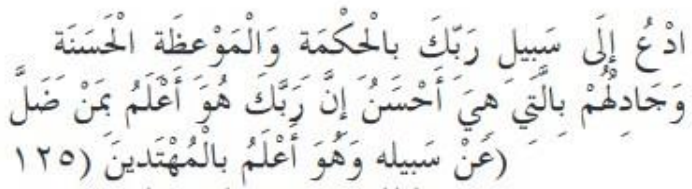 ادْعُ إِلَى سَبِيلِ رَبِّكَ بِالْحِكْمَةِ وَالْمَوْعِظَةِ الْحَسَنَةِ
وَجَادِلْهُمْ بِالَّتِي هِيَ أَحْسَنُ إِنَّ رَبَّكَ هُوَ أَعْلَمُ بِمَنْ ضَلَّ
عَنْ سَبِيلِهِ وَهُوَ أَعْلَمُ بِالْمُهْتَدِينَ (١٢٥)